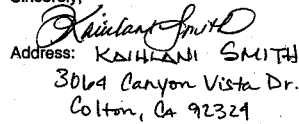 Sincerely,
Kaihlani Smith
Address: KAIHLANI SMITH
3064 Canyon Vista Dr.
Colton, CA 92324